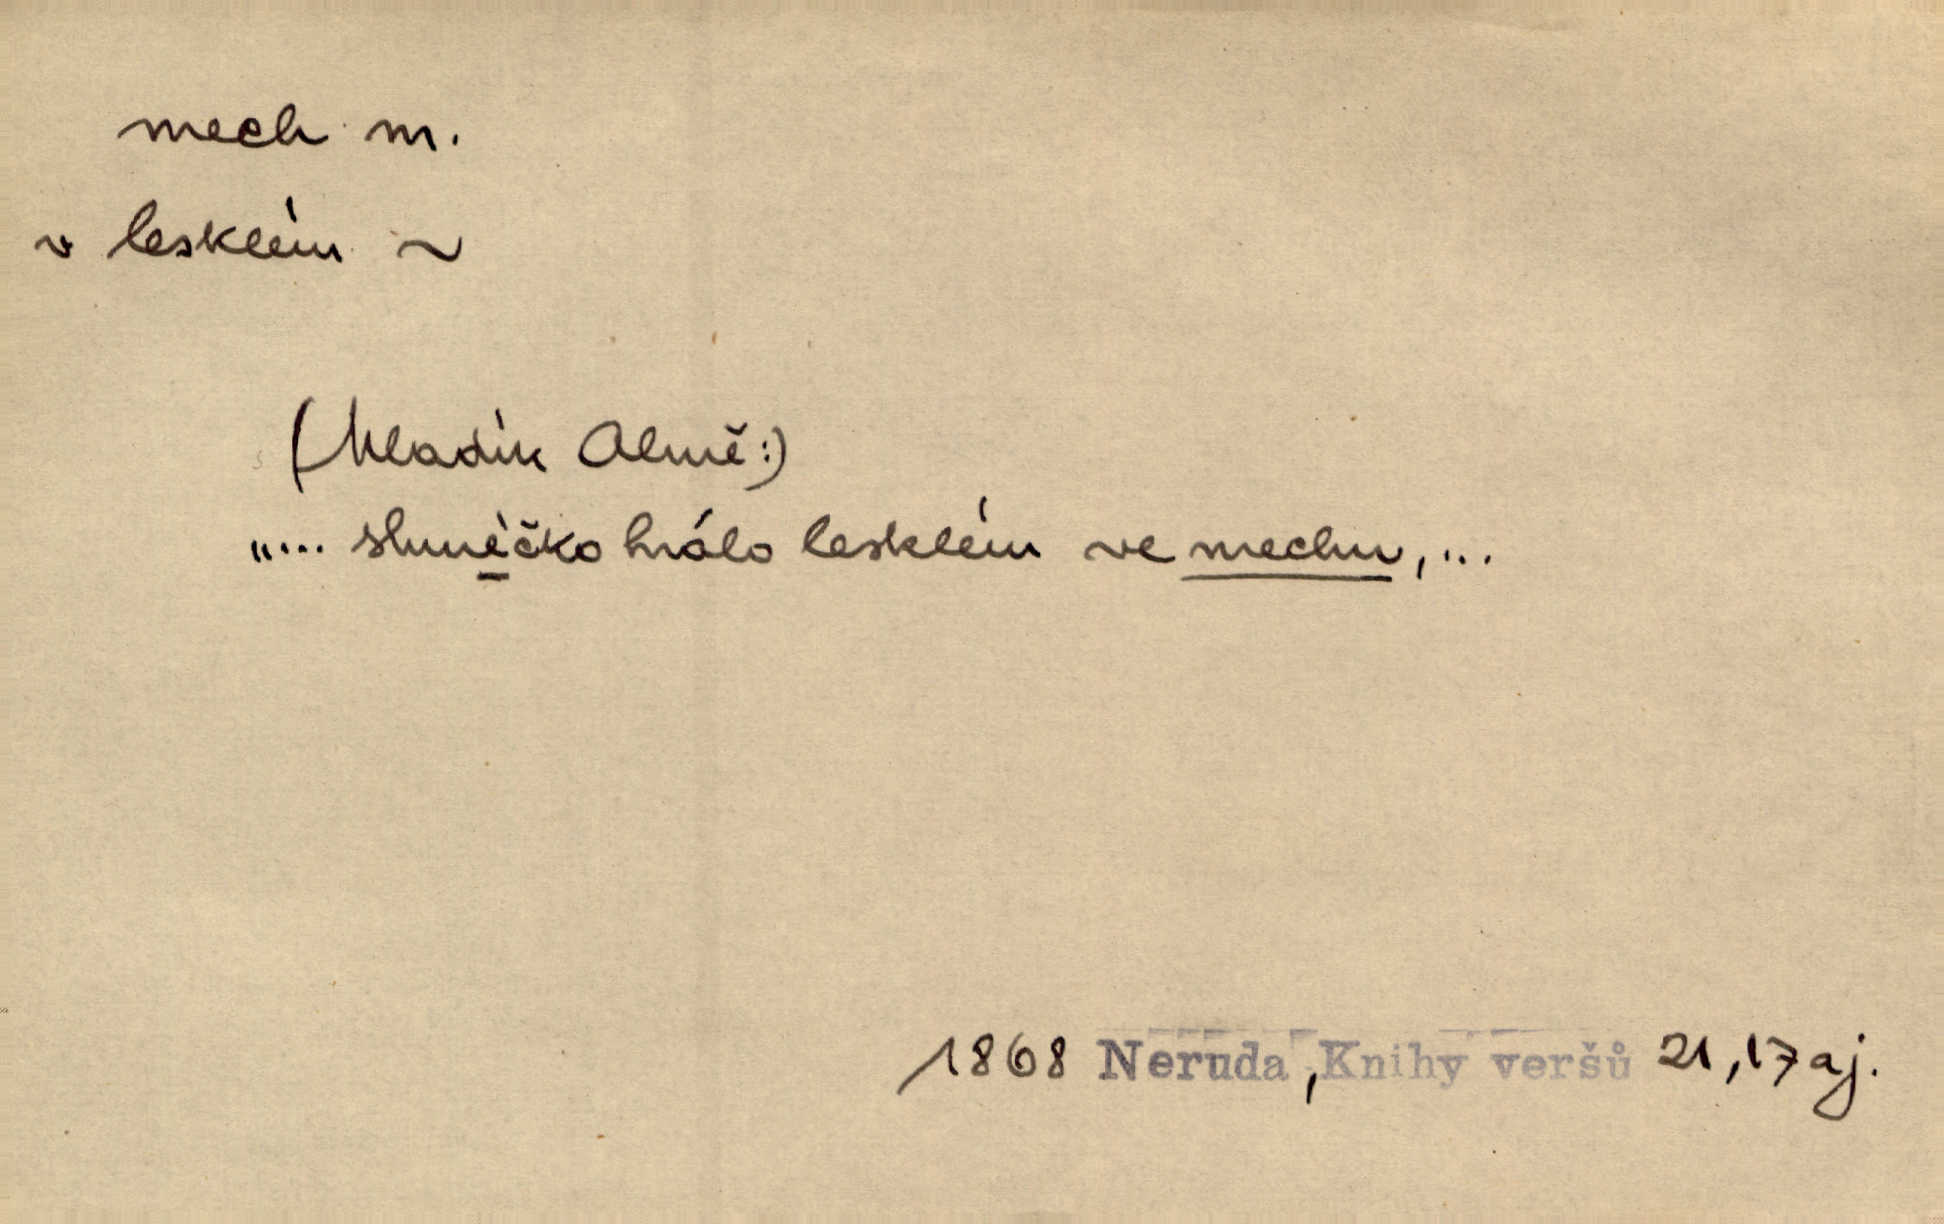 mech m.
v lesklém ~
(Mladík Almě:)
„... slunéčko hrálo lesklém ve mechu, ...
1868 Neruda, Knihy veršů 21,17 aj.